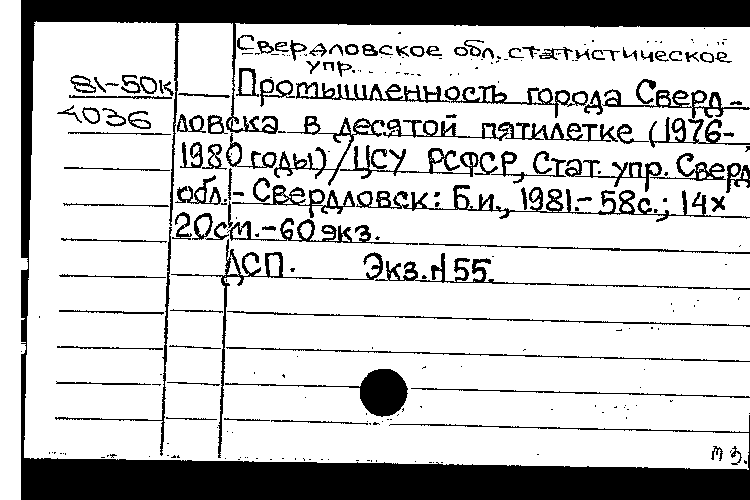 Свердловское обл. статистическое
упр.
81-50к Промышленность города Сверд-
4036 ловска в десятой пятилетке (1976-
1980 годы) / ЦСУ РСФСР, Стат. упр. Сверд
обл. - Свердловск: Б.и., 1981. - 58с.; 14х
20см. - 60 экз.
ДСП. Экз. № 55.